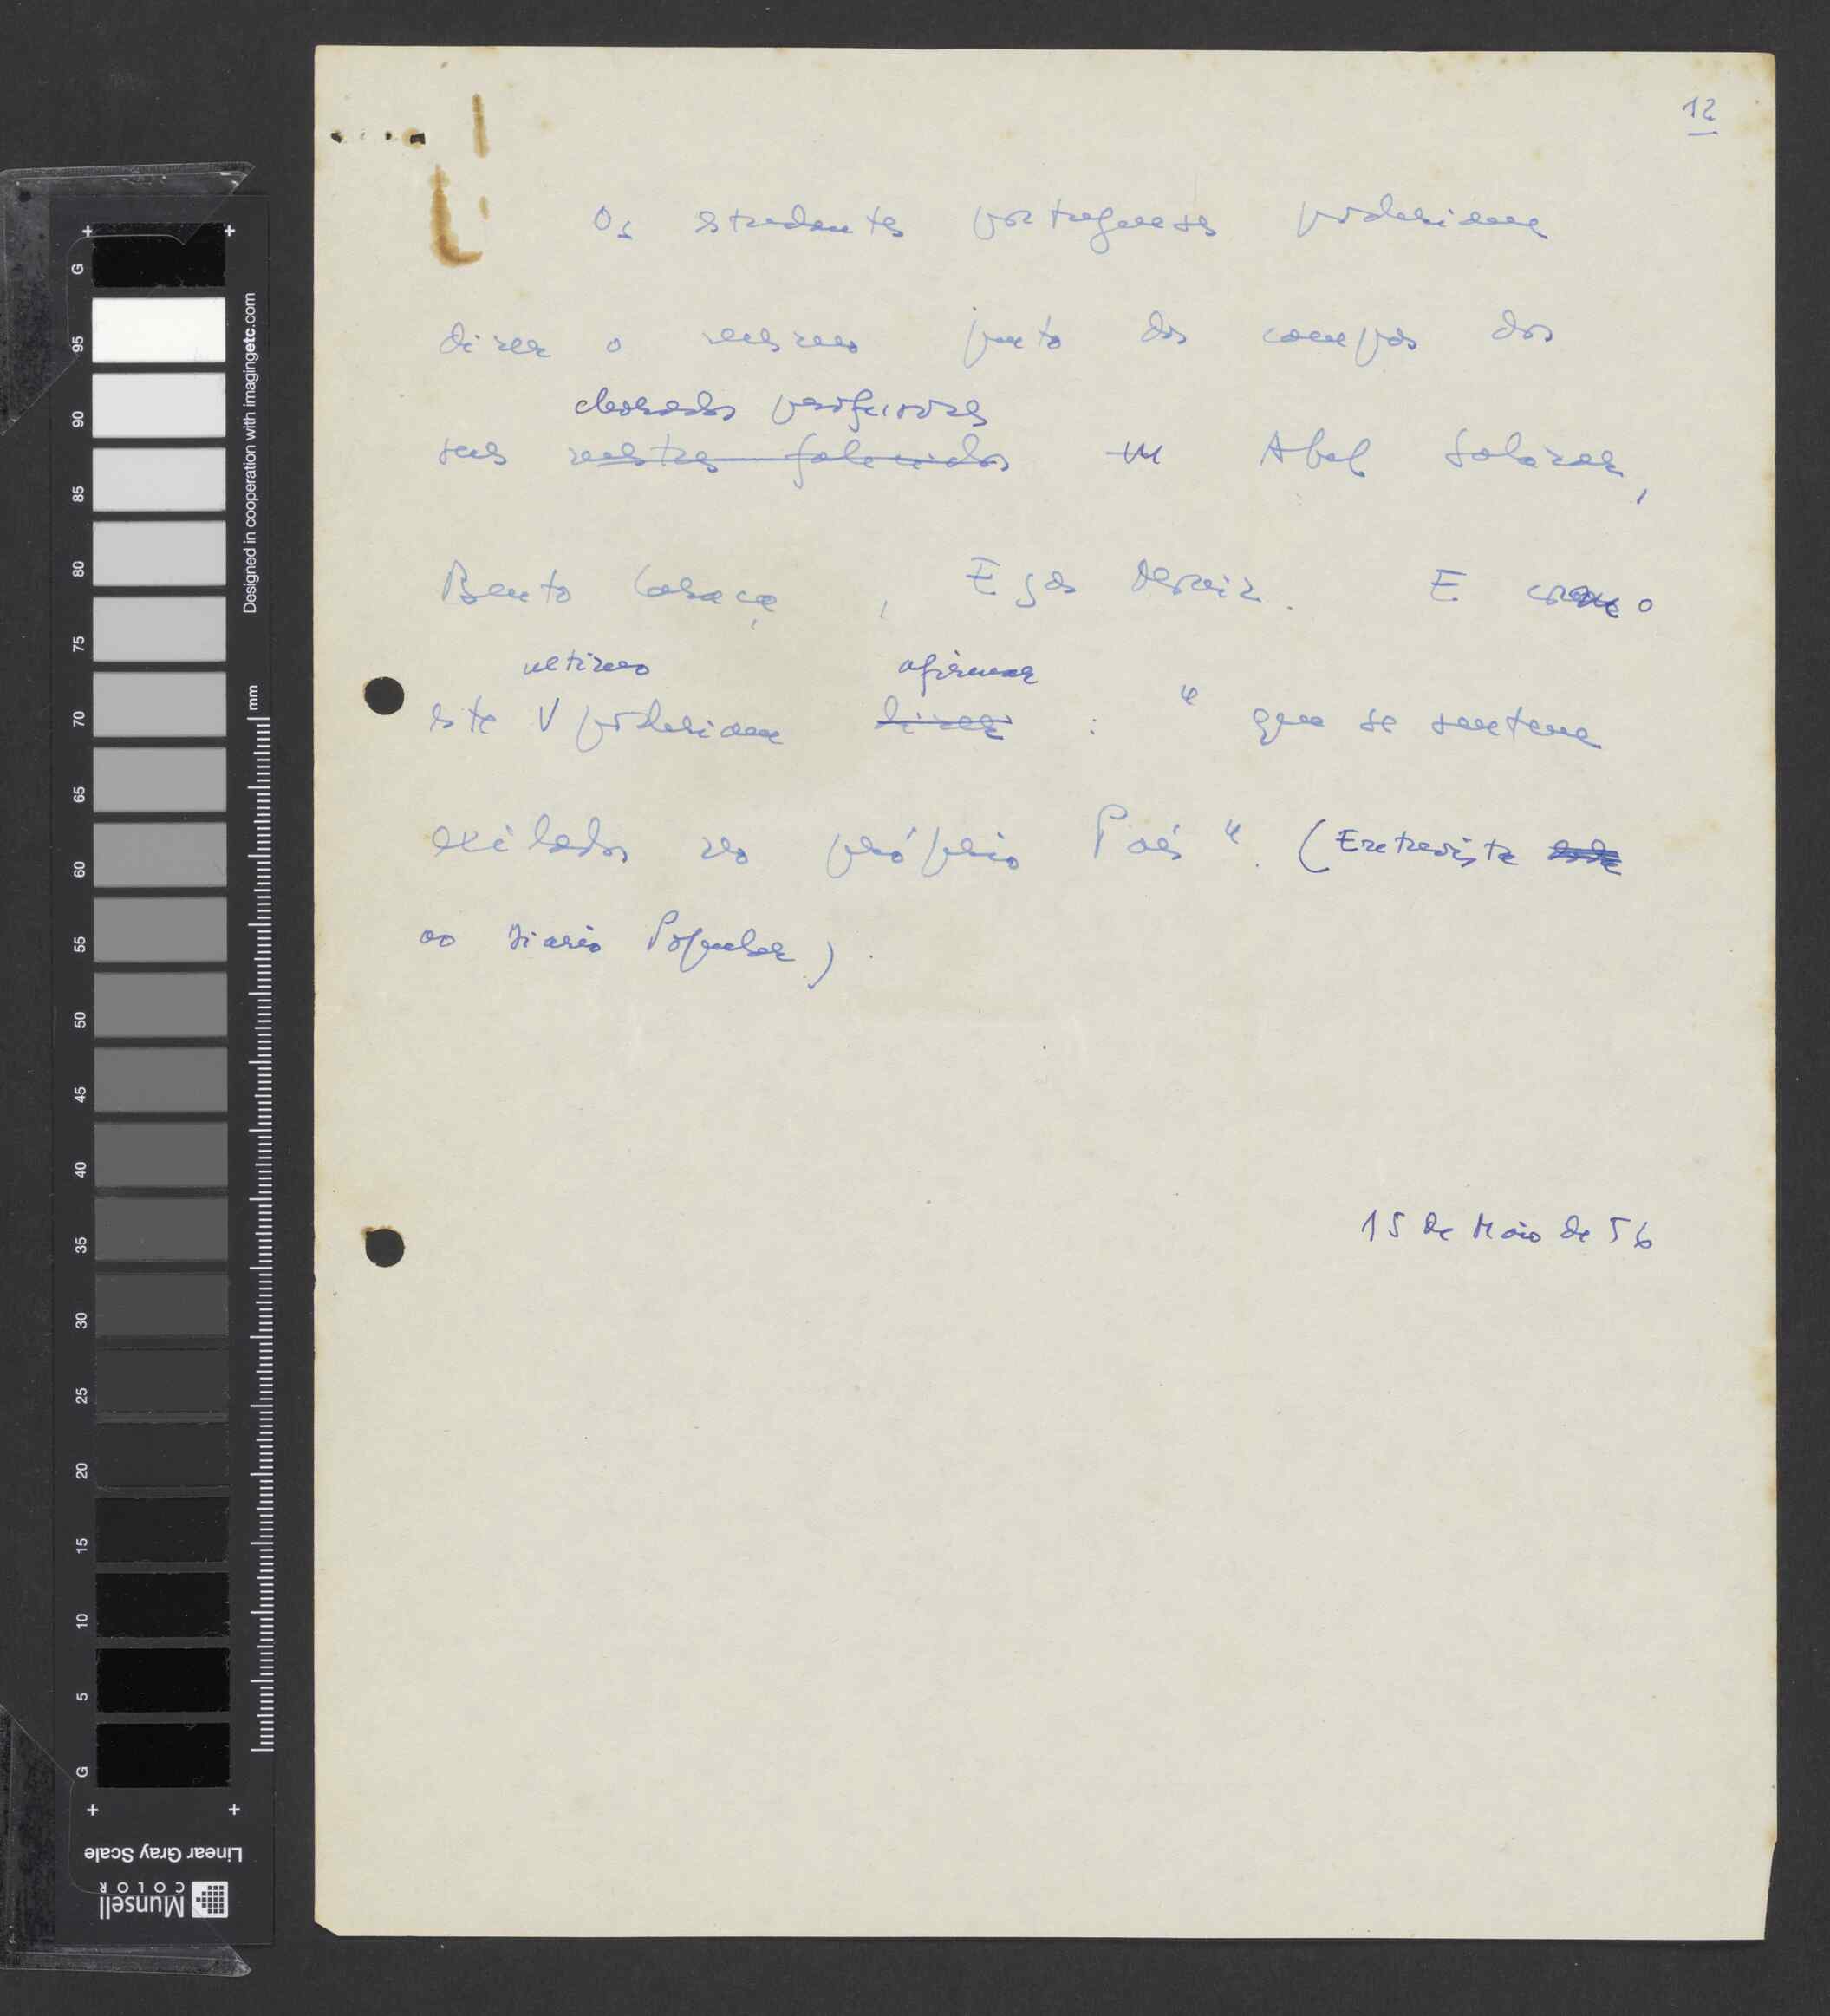 12
Os estudantes portugueses poderiam
dizer o mesmo junto dos campos dos
chorados professores
seus mestres falecidos Abel Salazar,
Bento Caraça, Egas Moniz. E como o
ultimo afirmar
este poderiam dizer : " que se sentem
exilados no próprio País ". (Entrevista
ao Diario Popular).
15 de Maio de 56
G
95
90
85
80
75
70
65
60
55
50
45
40
35
30
25
20
15
10
5
G
mm
Designed in cooperation with imagingetc.com
Linear Gray Scale
Munsell
COLOR